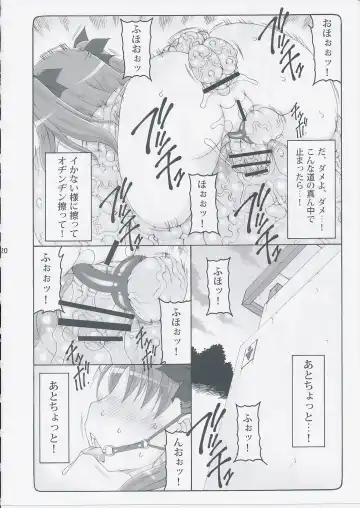 おほぉぉッ！
だ、ダメよ、ダメ…！
こんな道の真ん中で
止まったら…！
ふほおぉッ！
ブッチュ
ブッチュ
ブッチュ
ほおぉッ！
イかない様に擦って
オヂンヂン擦って！
20
ふほぉッ！
ふぉぉッ！
ほぉッ！
ふぉッ！
あとちょっと…！
あとちょっと！
んおぉッ！